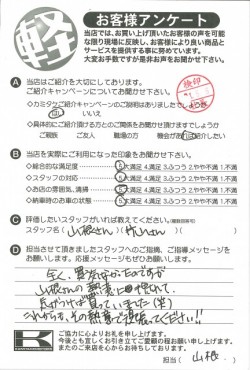 軽
お客様アンケート
当店では、お買い上げ頂いたお客様の声を可能
な限り現場に反映し、お客様により良い商品と
サービスを提供する事に努めています。
大変お手数ですが是非お声をお聞かせ下さい。
A 当店はご紹介を大切にしております。
ご紹介キャンペーンについてお聞かせ下さい。
検印
◇カミタケご紹介キャンペーンのご説明はありましたでしょうか
はい いいえ
◇具体的にご紹介頂ける方との関係をお聞かせ頂けますでしょうか
ご親戚 ご友人 職場の方 機会があればご紹介したい
B 当店を実際にご利用になった印象をお聞かせ下さい。
◇総合的な満足度 5.大満足 4.満足 3.ふつう 2.やや不満 1.不満
◇スタッフの対応 5.大満足 4.満足 3.ふつう 2.やや不満 1.不満
◇お店の雰囲気、清掃 5.大満足 4.満足 3.ふつう 2.やや不満 1.不満
◇納車時のお車の状態 5.大満足 4.満足 3.ふつう 2.やや不満 1.不満
C 評価したいスタッフがいれば教えてください。(複数回答可)
スタッフ名( 山根さん )( 竹山さん )
D 担当させて頂きましたスタッフへのご指摘、ご指導メッセージを
お願いします。応援メッセージもお待ちしております。
全く、買う気なかったのですが
山根さんの熱意に
気がつけば買っていました(笑)
これからも、その熱意で頑張ってください!!
K
ご協力に心よりお礼を申し上げます。
今後とも宜しくお引き立てご愛顧の程お願い申し上げます。
またのご来店を心からお待ちしております。
担当( 山根 )